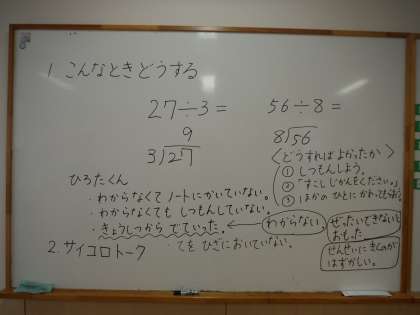 1. こんなときどうする
27÷3=
56÷8=
9
3)27
8)56
ひろたくん
・わからなくて ノートにかいていない。
・わからなくても しつもんしていない。
・きょうしつから でていった。
・てを ひざにおいていない。
〈どうすれば よかったか〉
① しつもんしよう。
② 「すこし じかんをください。」
③ ほかの ひとに かわってもらう。
わからない。
ぜったいできないと
おもった
せんせいに きくのが
はずかしい。
2. サイコロトーク